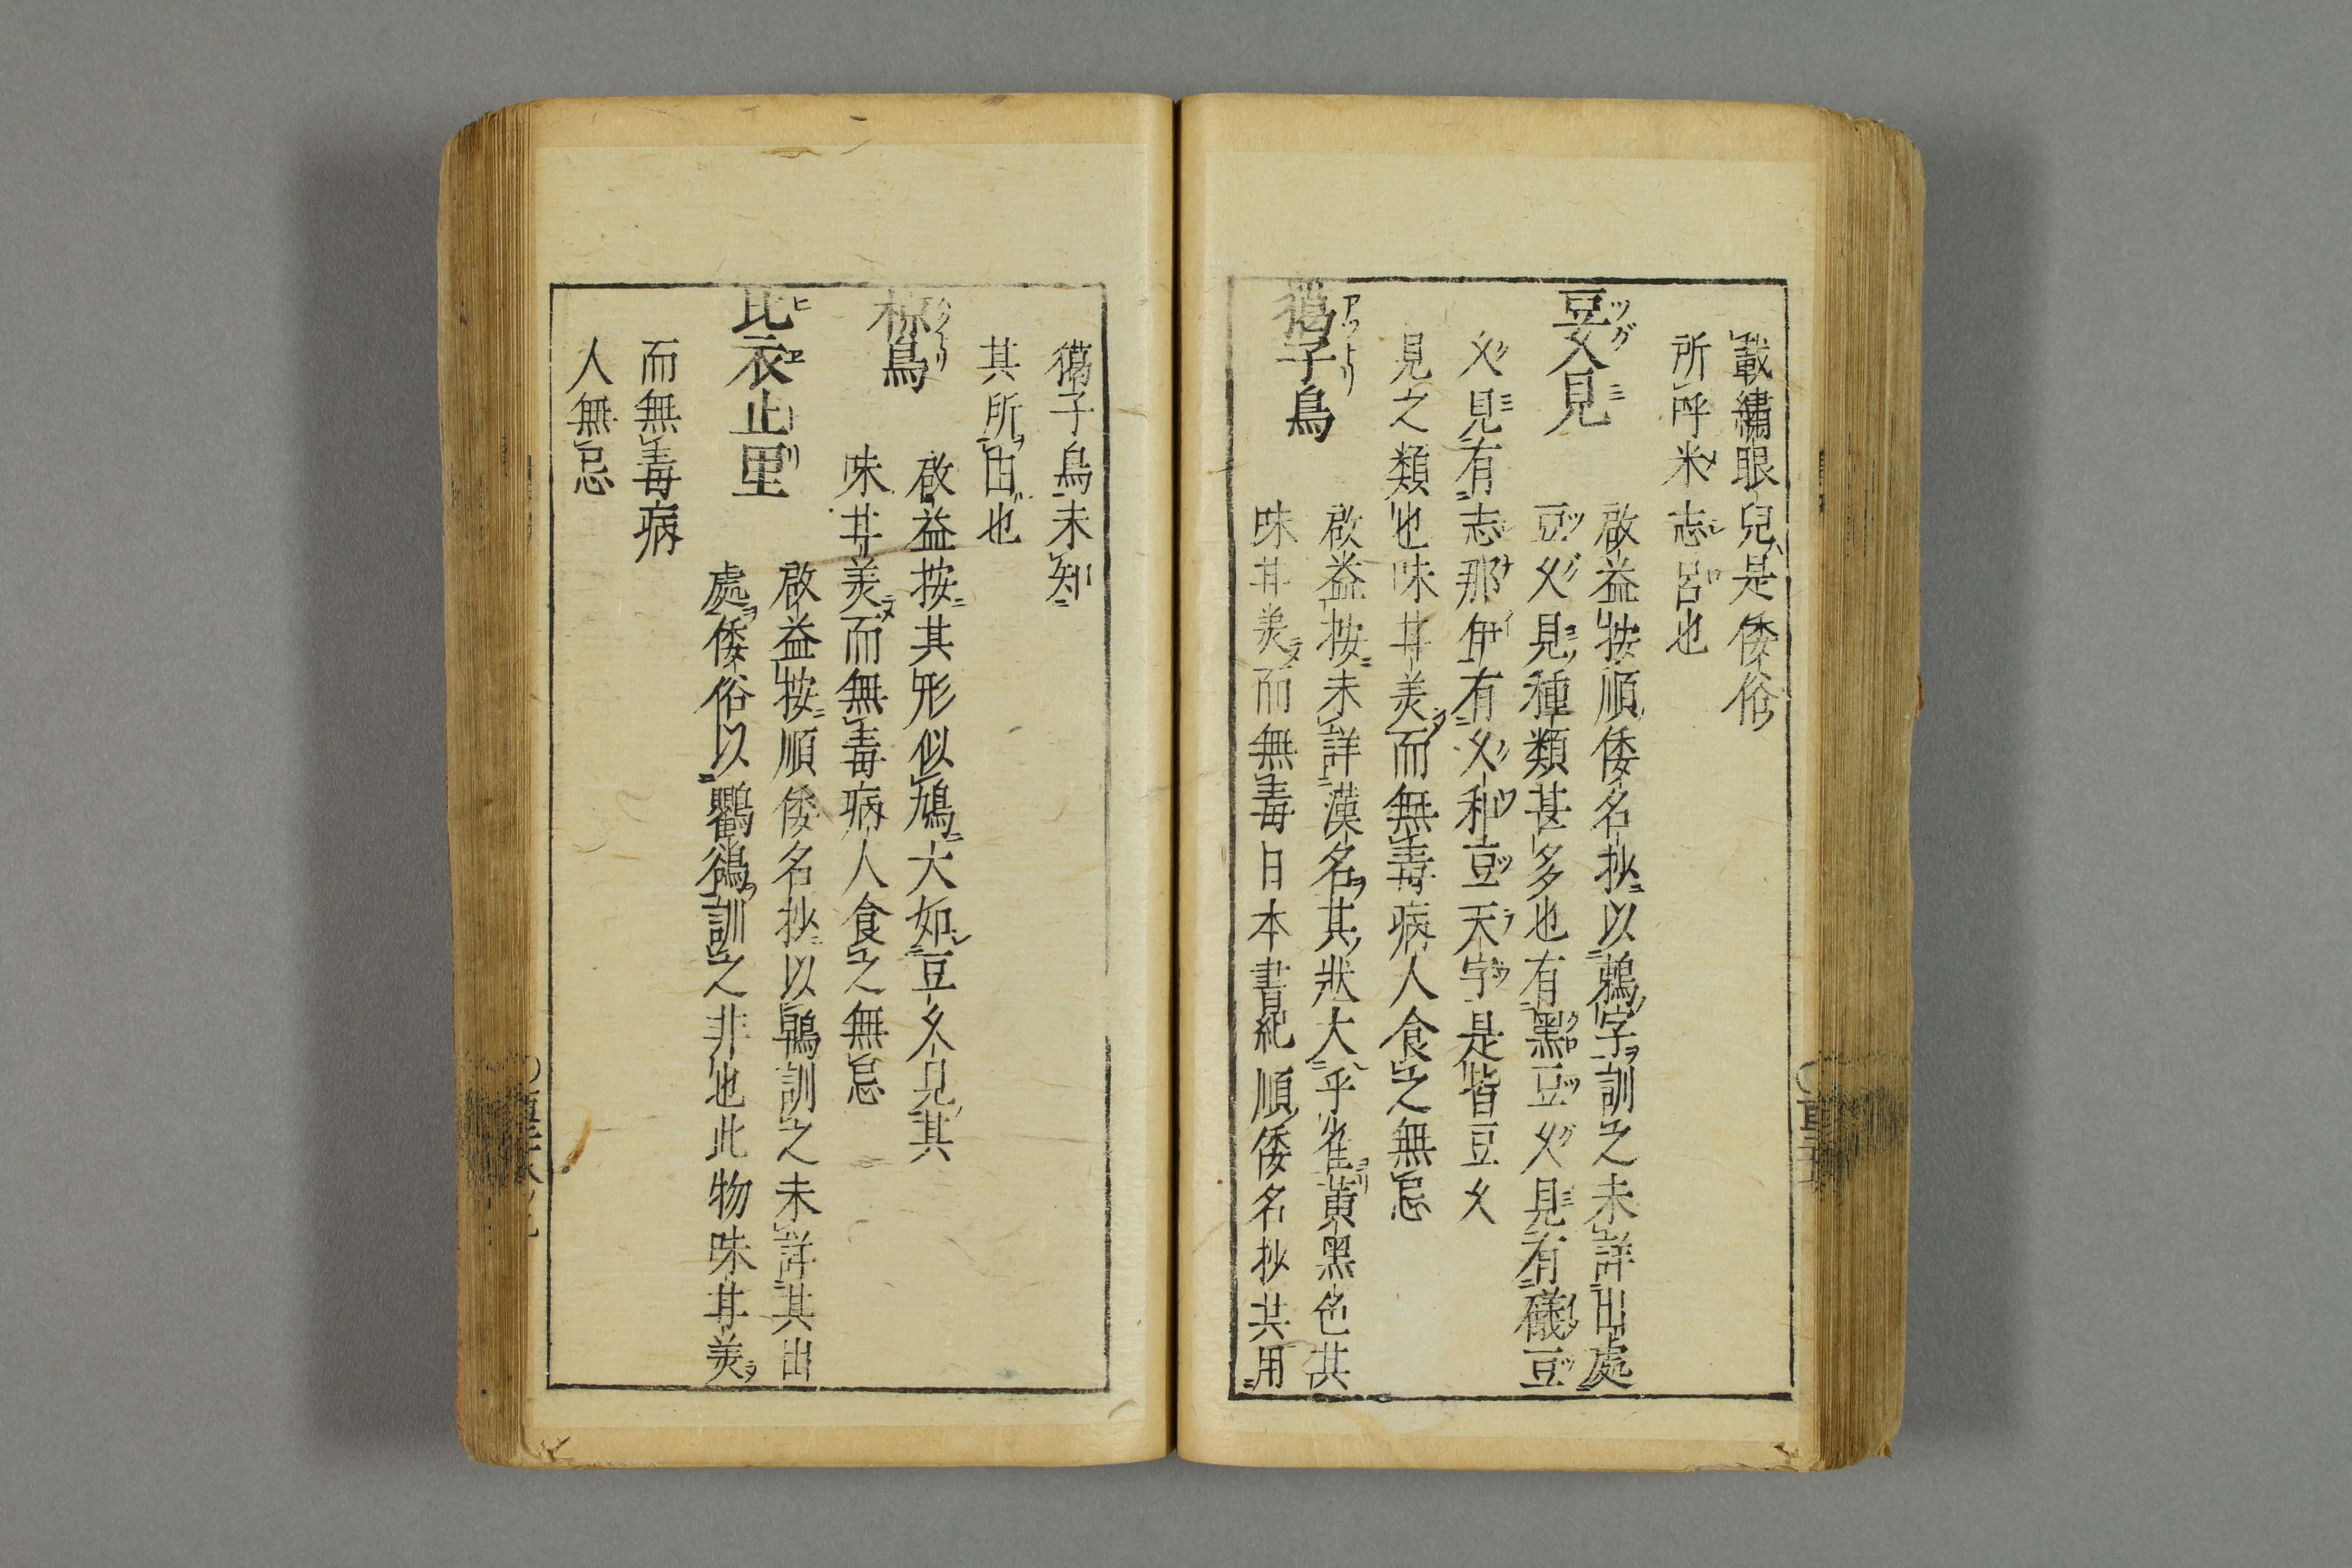 載繡眼兒是倭俗
所呼米志呂也
豆久見
啟益按順倭名抄以鶫字訓之未詳出處
豆久見種類甚多也有黑豆久見有礒豆
久見有志那伊有久和豆天宇是皆豆久
見之類也味甘美而無毒病人食之無忌
獦子鳥
啟益按未詳漢名其狀大乎雀黃黑色其
味甘美而無毒日本書紀順倭名抄共用
獦子鳥未知
其所由也
椋鳥
啟益按其形似鳩大如豆久見其
味甘美而無毒病人食之無忌
比衣止里
啟益按順倭名抄以鵯訓之未詳其出
處倭俗以鸜鵒訓之非也此物味甘美
而無毒病
人無忌